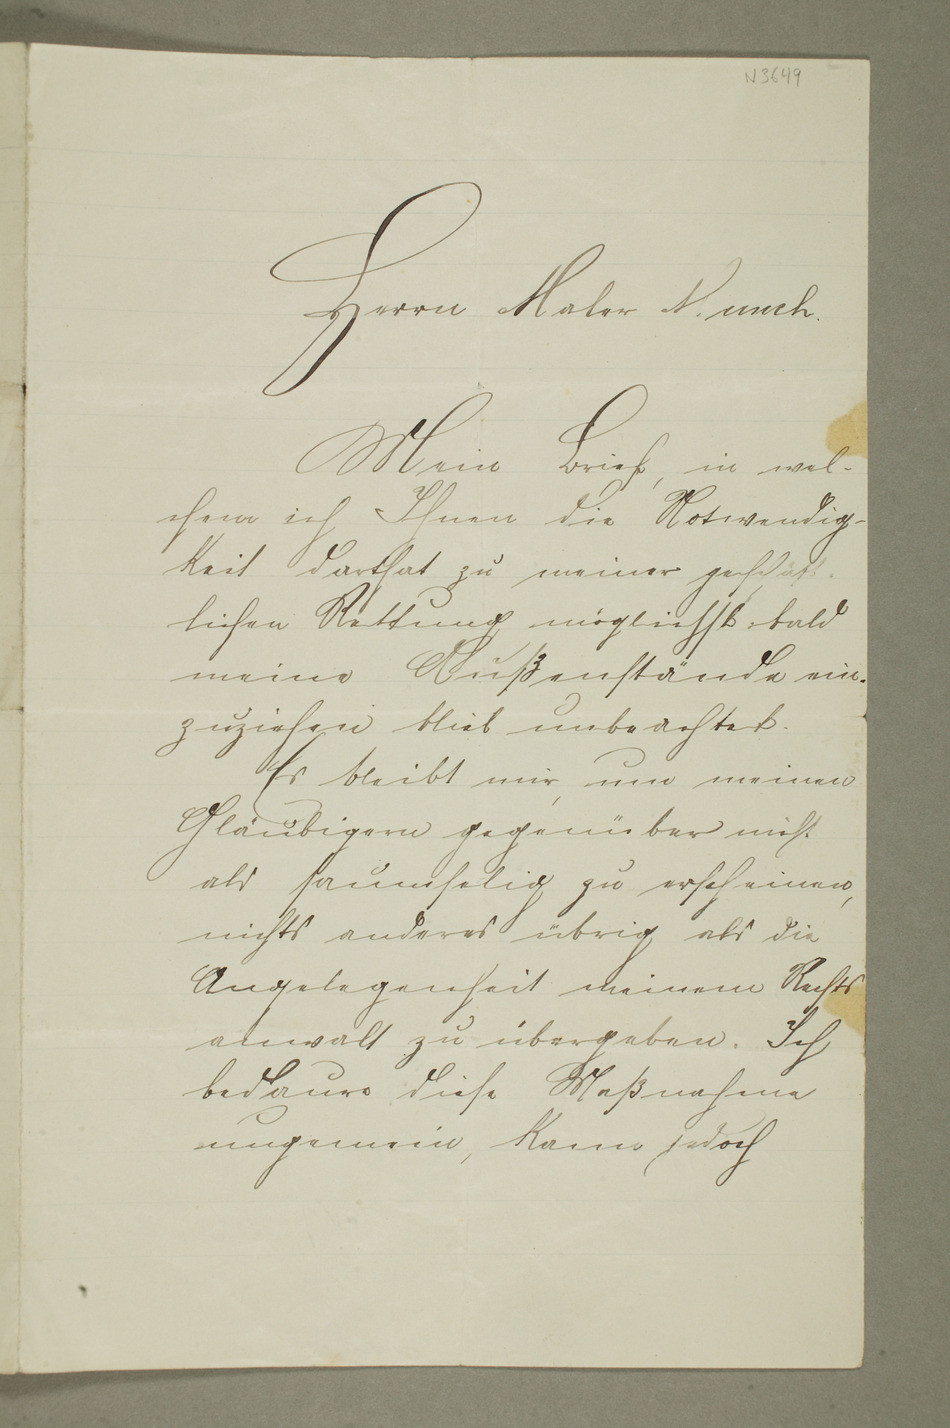 N3649
Herrn Maler N. unch.
Mein Brief, in wel-
chem ich Ihnen die Notwendig-
keit darthat zu meiner geschäft-
lichen Rettung möglichst bald
meine Außenstände ein-
zuziehen blieb unbeachtet.
Es bleibt mir, um meinen
Gläubigern gegenüber nicht
als saumselig zu erscheinen,
nichts anderes übrig als die
Angelegenheit meinem Rechts
anwalt zu übergeben. Ich
bedaure diese Maßnahme
ungemein, kann jedoch